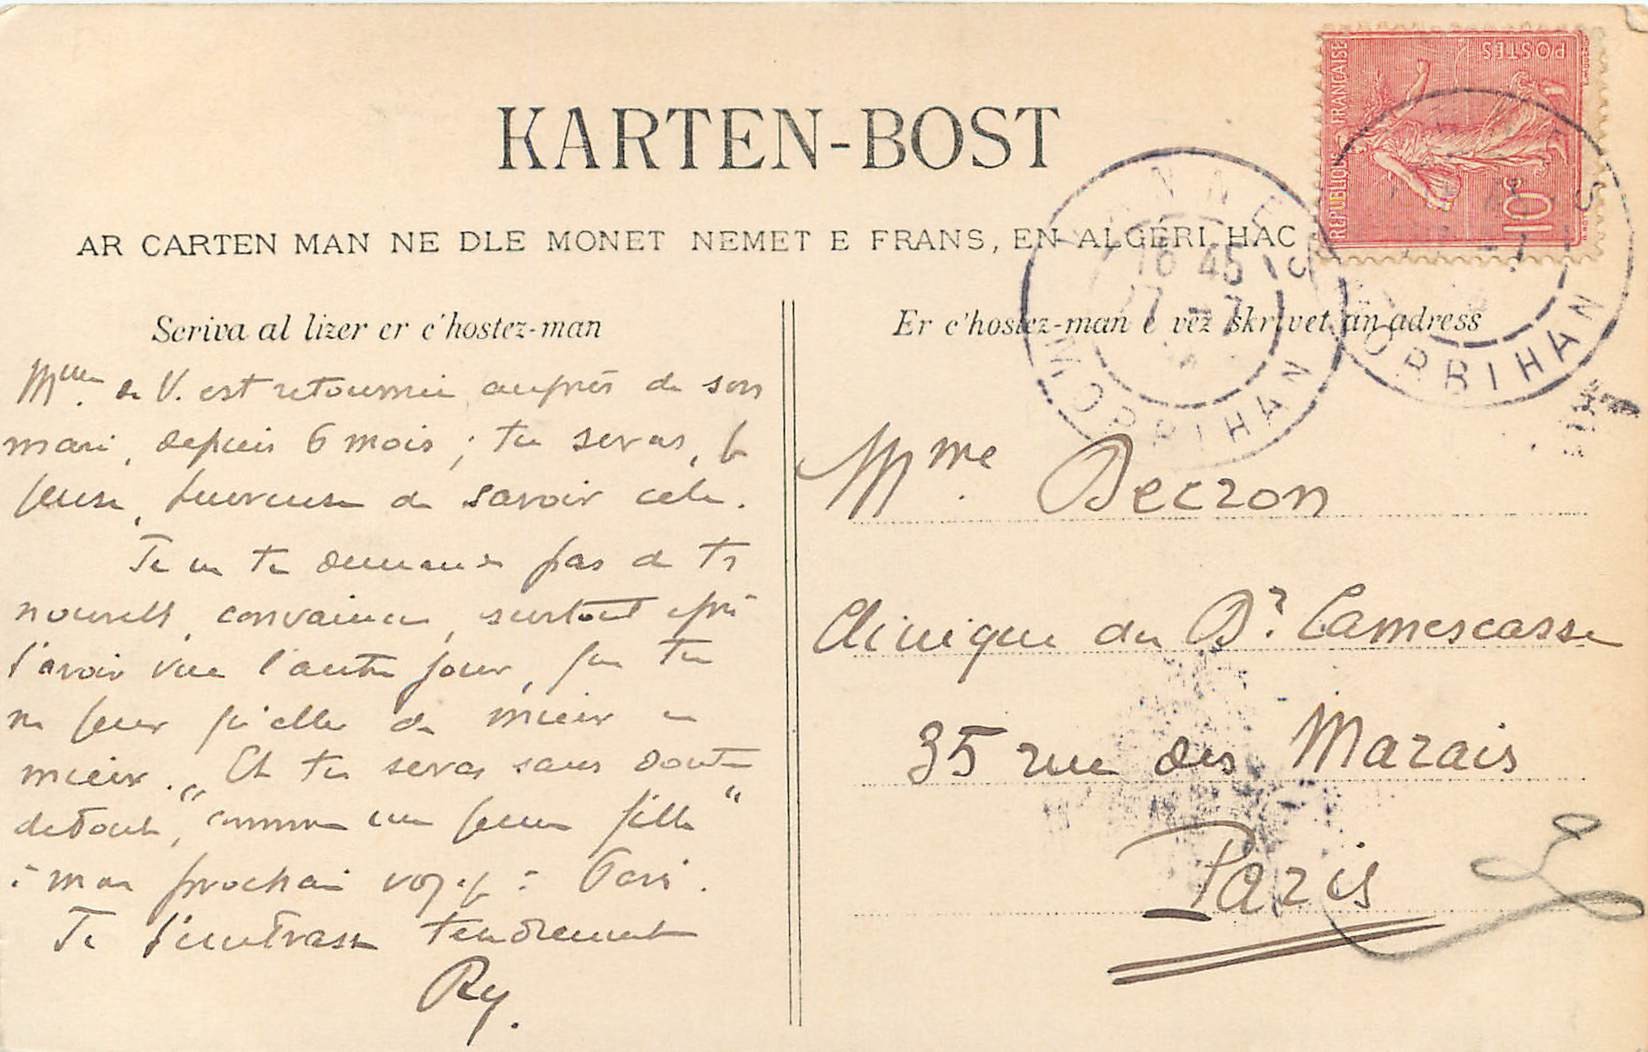 KARTEN-BOST
AR CARTEN MAN NE DLE MONET NEMET E FRANS, EN ALGÉRI HAC
POSTES
REPUBLIQUE FRANÇAISE
10c
VANNES
16 45
27 -7
MORBIHAN
MORBIHAN
Scriva al lizer er c'hostez-man
Er c'hostez-man e vez skrivet an adress
Mme de V. est retournée auprès de son
mari, depuis 6 mois ; tu seras, je
pense, heureuse de savoir cela.
Je ne te demande pas de tes
nouvelles, convaincu, surtout après
t'avoir vue l'autre jour, que tu
ne peux qu'aller de mieux en
mieux. Et tu seras sans doute
debout, "comme une jeune fille"
à mon prochain voyage à Paris.
Je t'embrasse tendrement
Ry.
Mme Decron
Clinique du Dr Lamescasse
35 rue des Marais
Paris